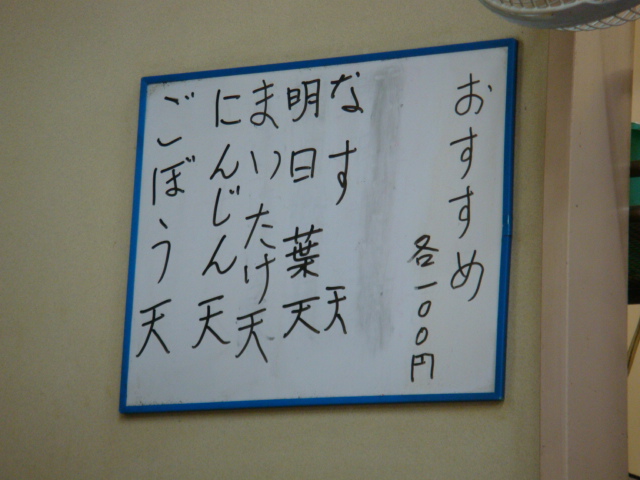 おすすめ
各一〇〇円
なす天
明日葉天
まいたけ天
にんじん天
ごぼう天